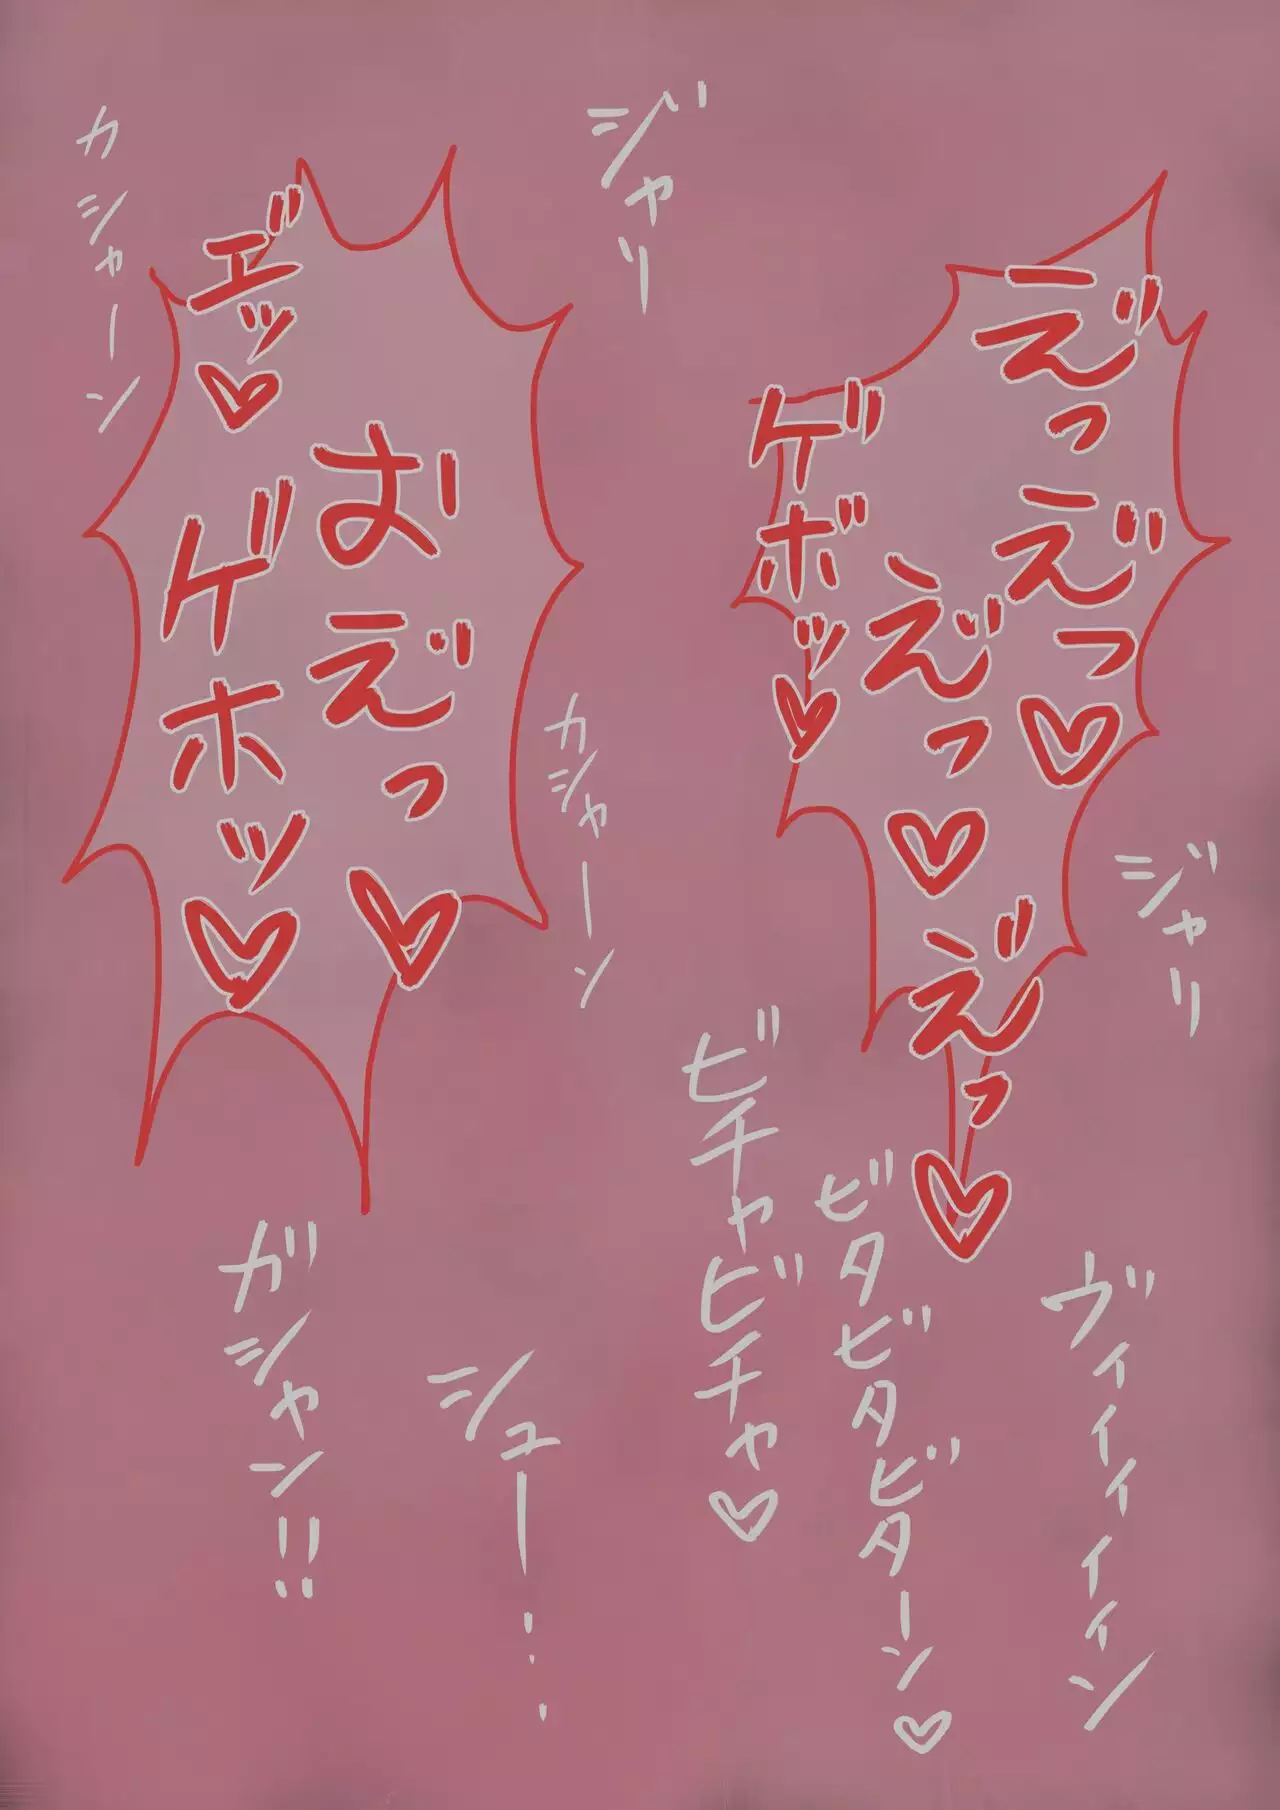 え゛っ
え゛っ♡
え゛っ♡
え゛っ♡
ゲボッ♡
ジャリ
ジャリ
お゛
え゛っ♡
エ゛ッ♡
ゲホッ♡
カシャーン
カシャーン
ヴィイイイイイン
ビタビタビターン♡
ビチャビチャ♡
シュー・・・
ガシャン!!